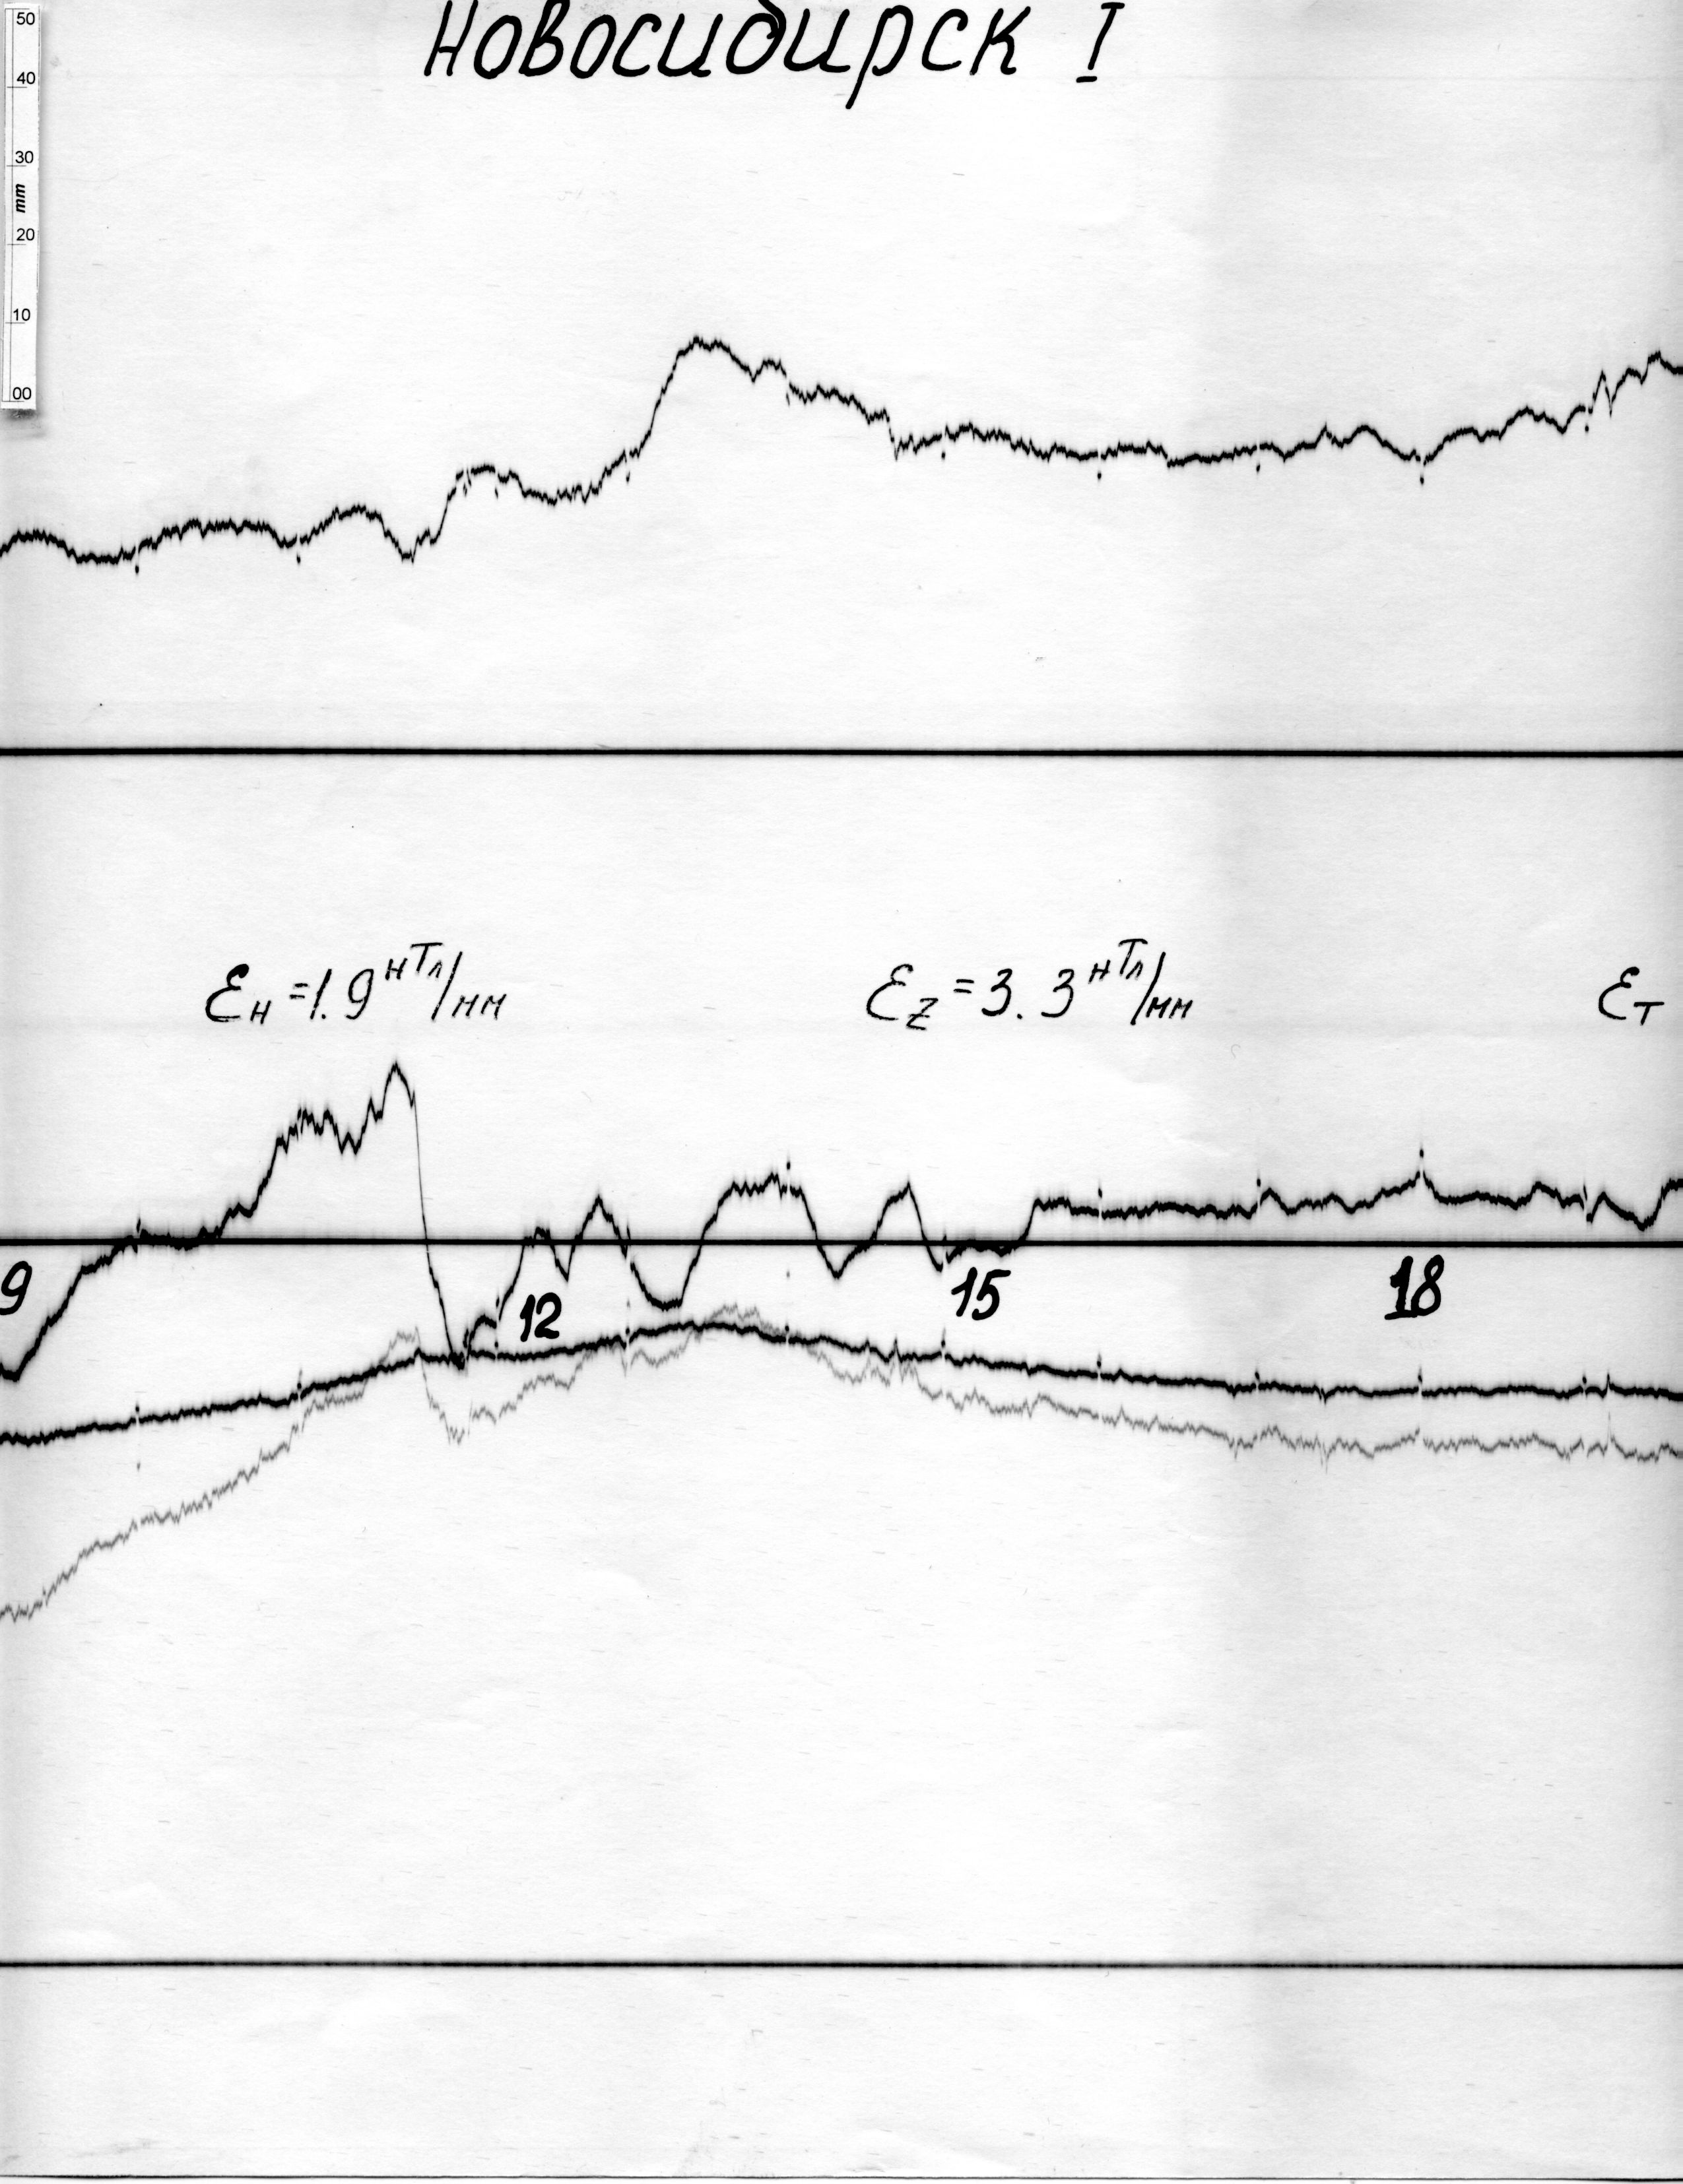 50
40
30
mm
20
10
00
Новосибирск I
εH = 1.9 нТл/мм
εZ = 3.3 нТл/мм
εT
9
12
15
18